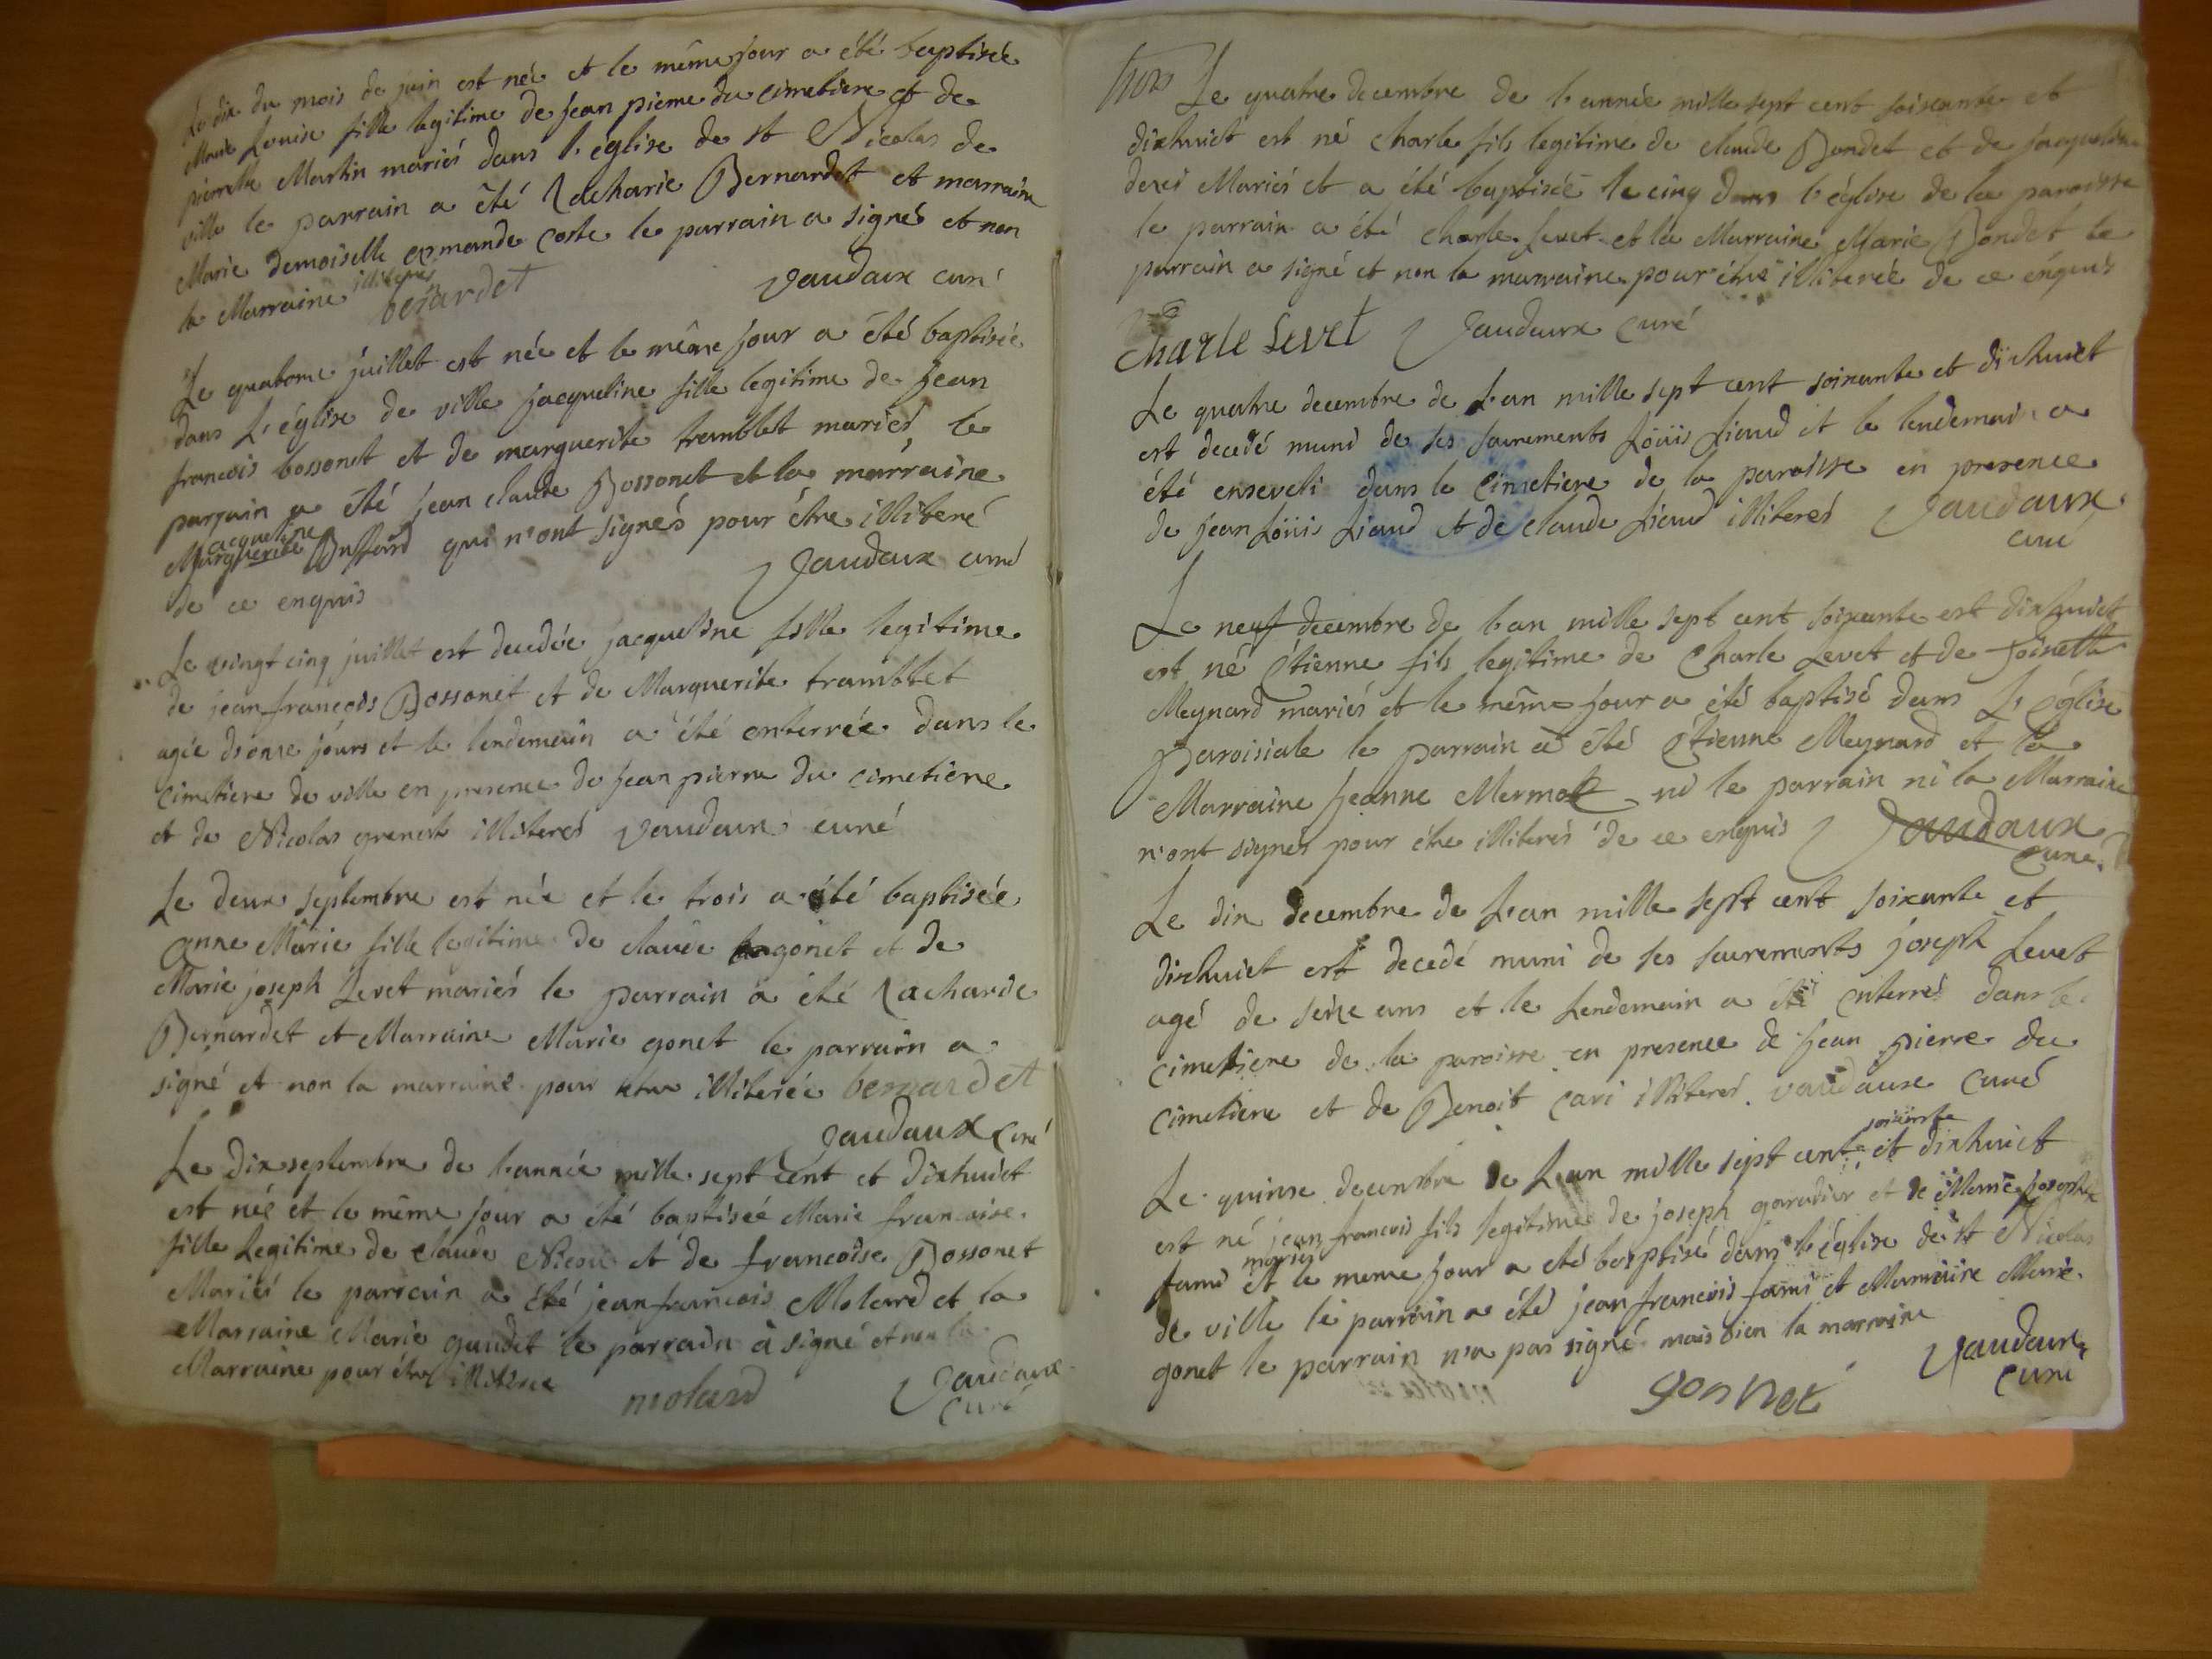 Le dix du mois de juin est née et le même jour a été baptisée
Marie Louise fille legitime de jean pierre du cimetiere et de
pierrette Martin mariés dans l'église de st Nicolas de
ville le parrain a été Zacharie Bernardet et marraine
Marie demoiselle armande coste le parrain a signés et non
la Marraine illiterés
berardet Vaudaux curé
Le quatorse juillet est née et le même jour a été baptisée
dans L'église de ville jacqueline fille legitime de jean
francois bossonet et de marguerite tramblet mariés, le
parrain a été jean claude Bossonet et la marraine
jacqueline
Marguerite qui n'ont signés pour être illiteré
de ce enquis Vaudaux curé
Le vingt cinq juillet est decedée jacqueline fille legitime
de jean francois Bossonet et de Marguerite tramblet
agée d'onze jours et le lendemain a été enterrée dans le
cimetiere de ville en presence de jean pierre du cimetiere
et de Nicolas illiterés Vaudaux curé
Le deux septembre est née et le trois a été baptisée
anne Marie fille legitime de claude gonet et de
Marie joseph Levet mariés le parrain a été Zacharie
Bernardet et Marraine Marie gonet le parrain a
signé et non la marraine pour etre illiterée bernardet
Vaudaux curé
Le dix septembre de l'année mille sept cent et dixhuict
est née et le même jour a été baptisée Marie francoise
fille Legitime de claude et de francoise Bossonet
Mariés le parrain a été jean francois Molard et la
Marraine Marie gaudet le parrain a signé et non la
Marraine pour être illiterée
molard Vaudaux
curé
Le quatre decembre de l'année mille sept cent soixante et
dixhuict est né charle fils legitime de claude Bondet et de jacqueline
Mariés et a été baptisée le cinq dans l'église de la paroisse
le parrain a été charle Levet et la Marraine Marie Bondet le
parrain a signé et non la marraine pour être illiterée de ce enquis
Charle Levet Vaudaux curé
Le quatre decembre de L'an mille sept cent soixante et dixhuict
est decedé muni de ses sacrements Loüis Liaud et le lendemain a
été enseveli dans le cimetiere de la paroisse en presence
de jean Loüis Liaud et de claude Liaud illiterés Vaudaux
curé
Le neuf decembre de l'an mille sept cent soixante est dixhuict
est né étienne fils legitime de Charle Levet et de
Meynard mariés et le même jour a été baptisé dans L'église
Paroisiale le parrain a été étienne Meynard et la
Marraine jeanne Mermot ni le parrain ni la Marraine
n'ont signés pour être illiterés de ce enquis Vaudaux
curé
Le dix decembre de L'an mille sept cent soixante et
dixhuict est decedé muni de ses sacrements joseph Levet
agé de seize ans et le Lendemain a été enterrés dans le
cimetiere de la paroisse en presence de jean pierre du
cimetiere et de Benoit cari illiterés. vaudaux curé
soixante
Le quinse decembre de L'an mille sept cent et dixhuict
est né jean francois fils legitime de joseph et de Marie josephte
mariés
et le meme jour a été baptisé dans l'église de st Nicolas
de ville le parrain a été jean francois et Marraine Marie
gonet le parrain n'a pas signé mais bien la marraine
gonnet Vaudaux
curé